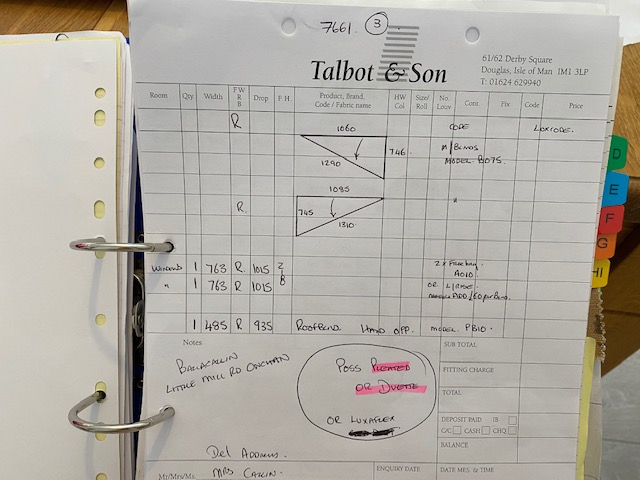 7661. 3
Talbot & Son
61/62 Derby Square
Douglas, Isle of Man IM1 3LP
T: 01624 629940
Room Qty Width F W R B Drop F. H Product, Brand, Code / Fabric name HW Col Size/ Roll No. Louv Cont Fix Code Price
R CODE LUXCODE.
1060
746 1290
M/BLINDS
MODEL B075.
1095
R. 745 1310 "
WINDOWS 1 763 R. 1015 2 x FREE
A010
" 1 763 R 1015 8 OR L/RISE.
ADD £60 per Blind.
1 485 R 935 ROOFBLIND. HAND OPP. MODEL. PB10.
Notes
BALLACALLIN
LITTLE MILL RD ONCHAN
POSS PLEATED
OR DUETTE
OR LUXAFLEX
SUB TOTAL
FITTING CHARGE
TOTAL
DEPOSIT PAID IB
C/C CASH CHQ
BALANCE
Del Address.
Mr/Mrs/Ms MRS
ENQUIRY DATE DATE MES. & TIME
D
E
F
G
HI